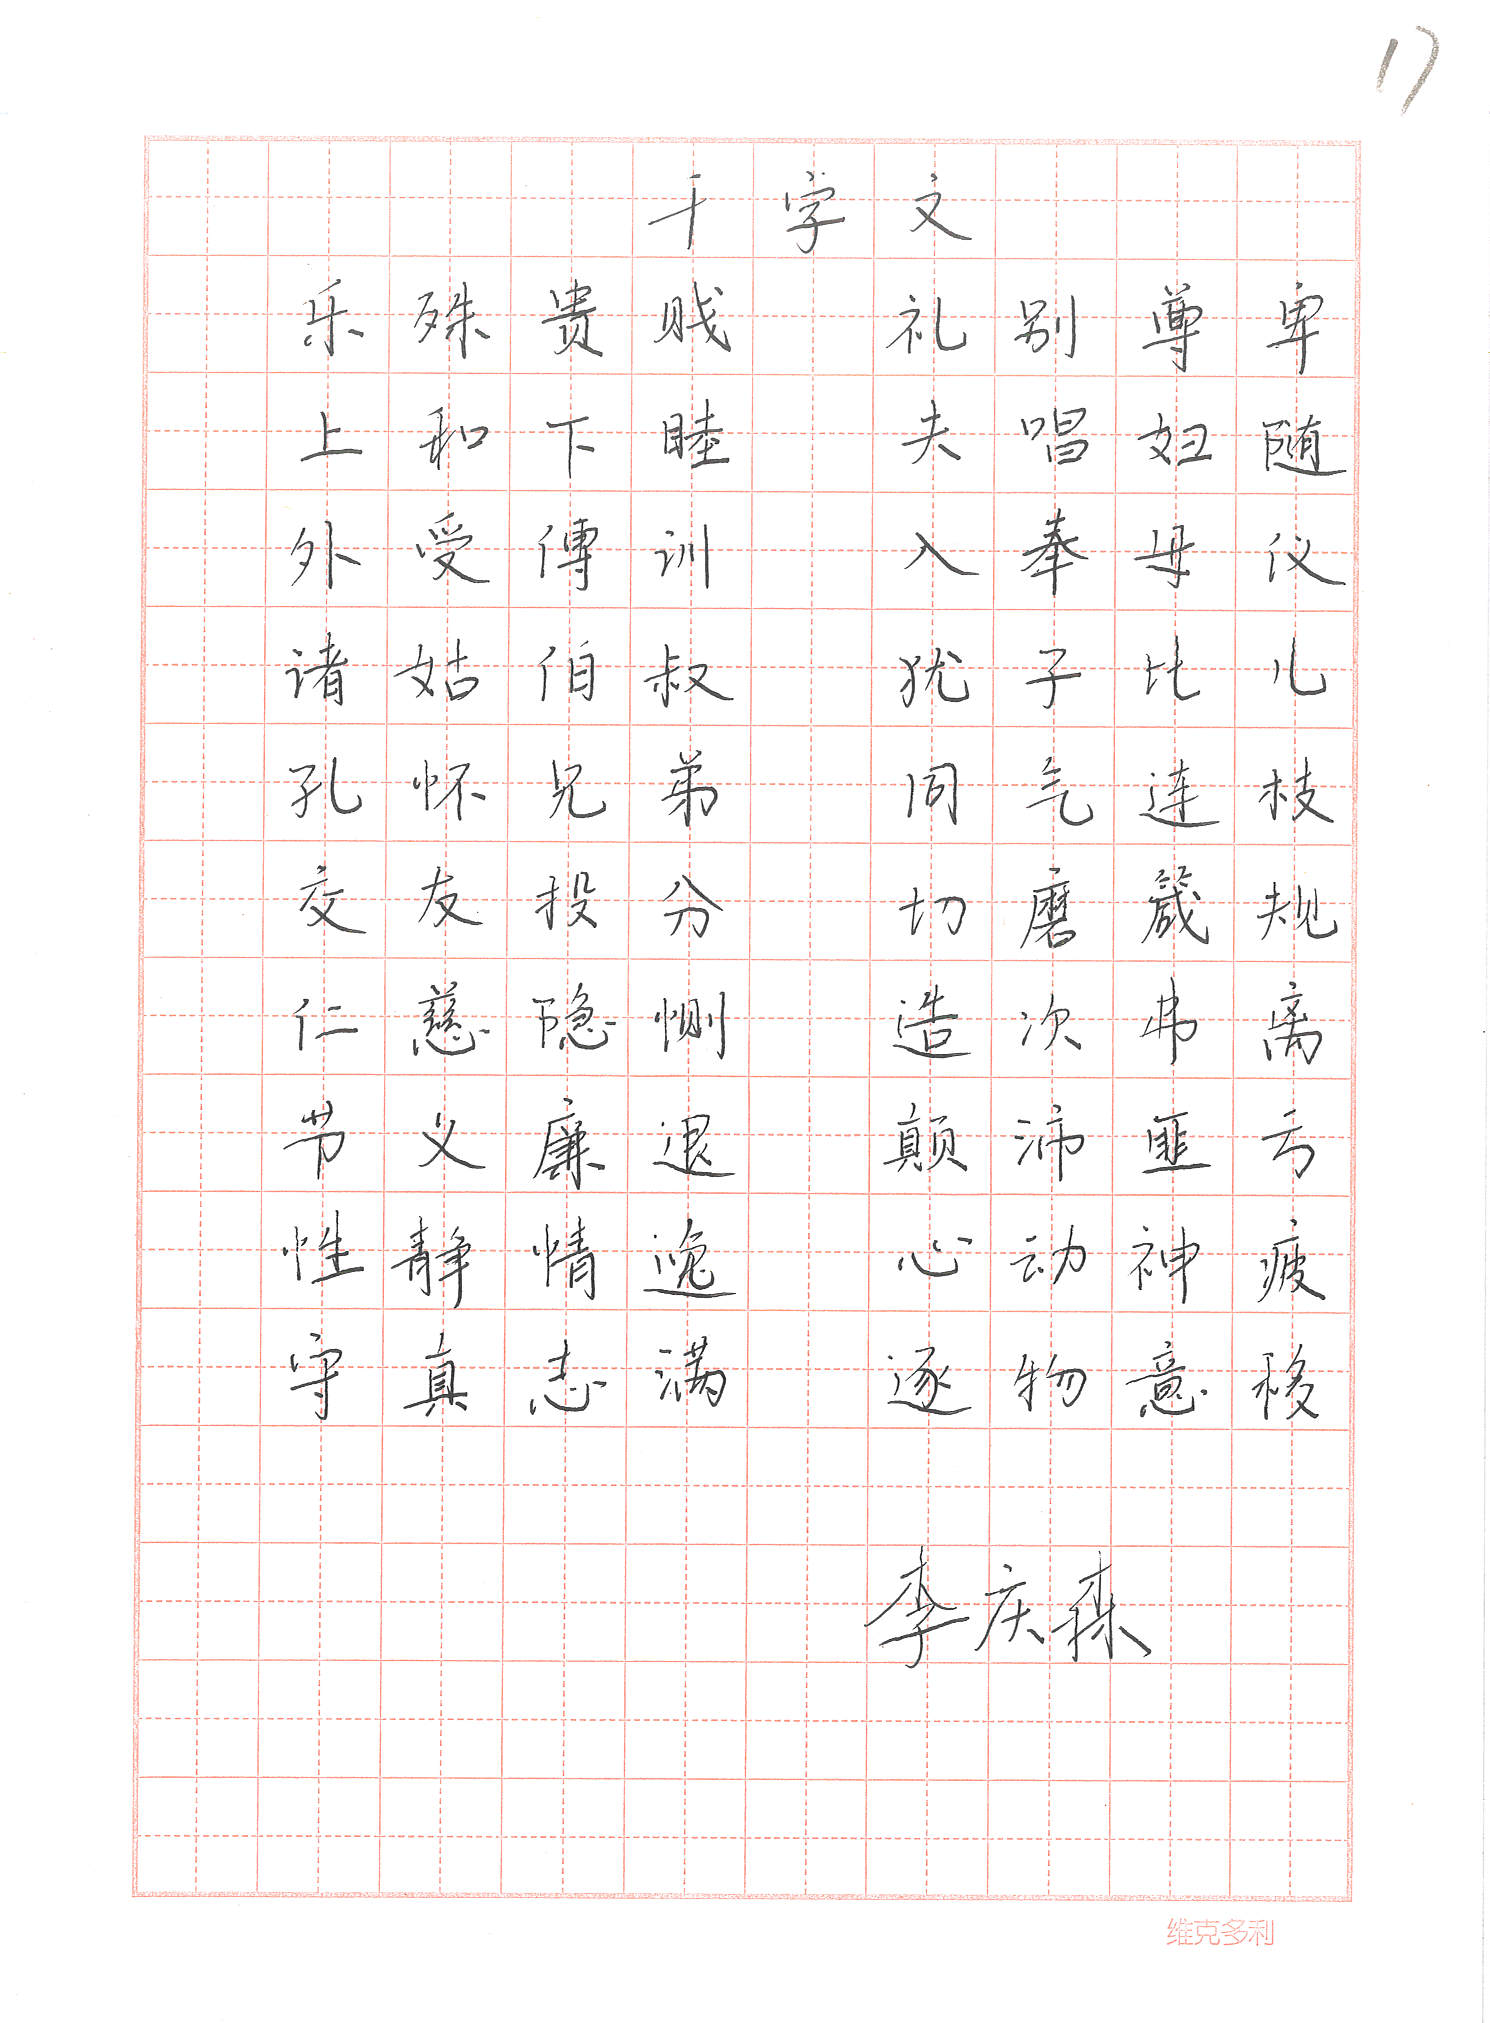 17
千字文
乐殊贵贱 礼别尊卑
上和下睦 夫唱妇随
外受傅训 入奉母仪
诸姑伯叔 犹子比儿
孔怀兄弟 同气连枝
交友投分 切磨箴规
仁慈隐恻 造次弗离
节义廉退 颠沛匪亏
性静情逸 心动神疲
守真志满 逐物意移
李庆森
维克多利